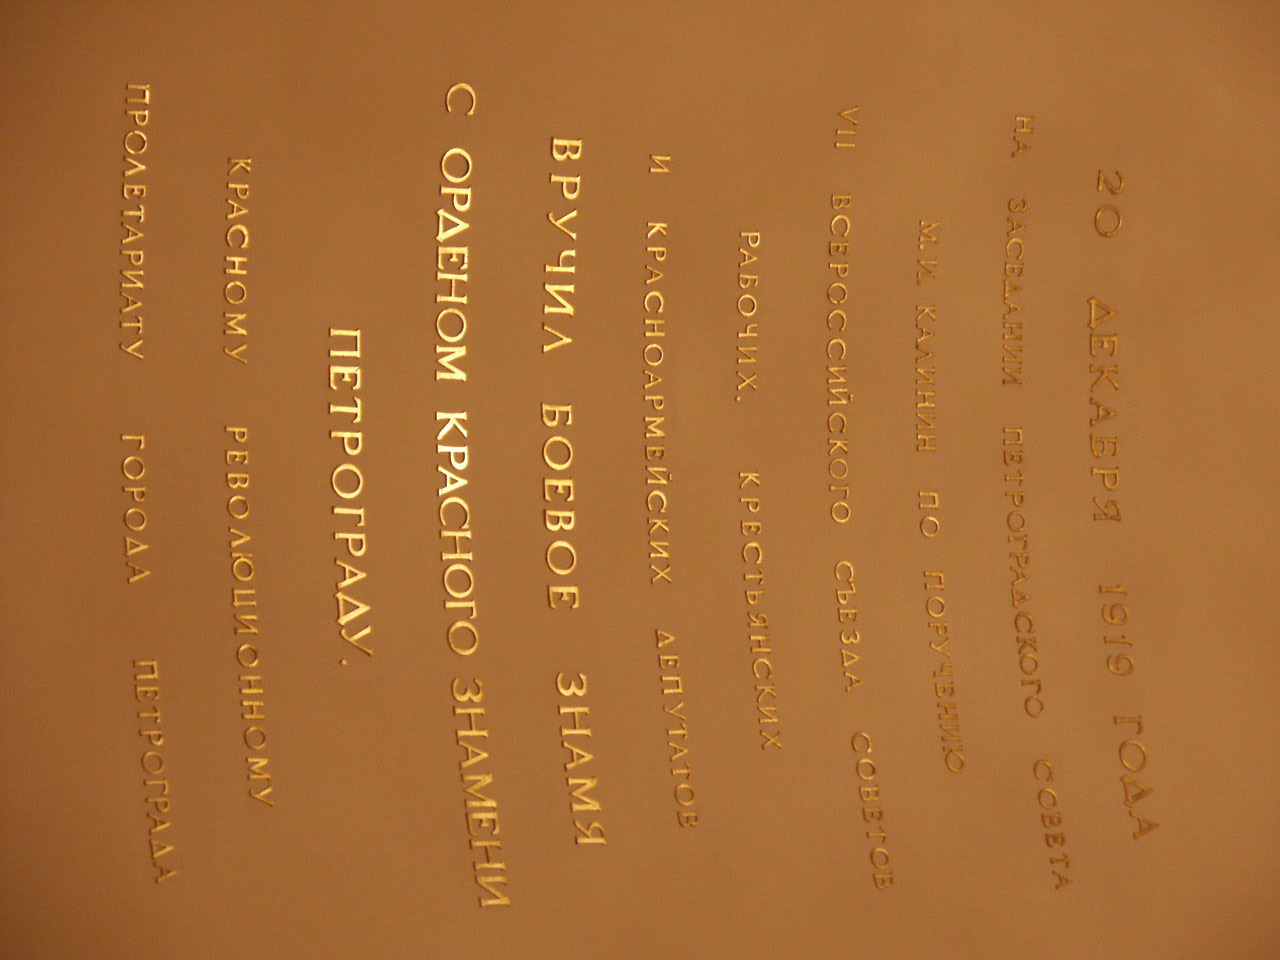 20 ДЕКАБРЯ 1919 ГОДА
НА ЗАСЕДАНИИ ПЕТРОГРАДСКОГО СОВЕТА
М.И. КАЛИНИН ПО ПОРУЧЕНИЮ
VII ВСЕРОССИЙСКОГО СЪЕЗДА СОВЕТОВ
РАБОЧИХ, КРЕСТЬЯНСКИХ
И КРАСНОАРМЕЙСКИХ ДЕПУТАТОВ
ВРУЧИЛ БОЕВОЕ ЗНАМЯ
С ОРДЕНОМ КРАСНОГО ЗНАМЕНИ
ПЕТРОГРАДУ.
КРАСНОМУ РЕВОЛЮЦИОННОМУ
ПРОЛЕТАРИАТУ ГОРОДА ПЕТРОГРАДА